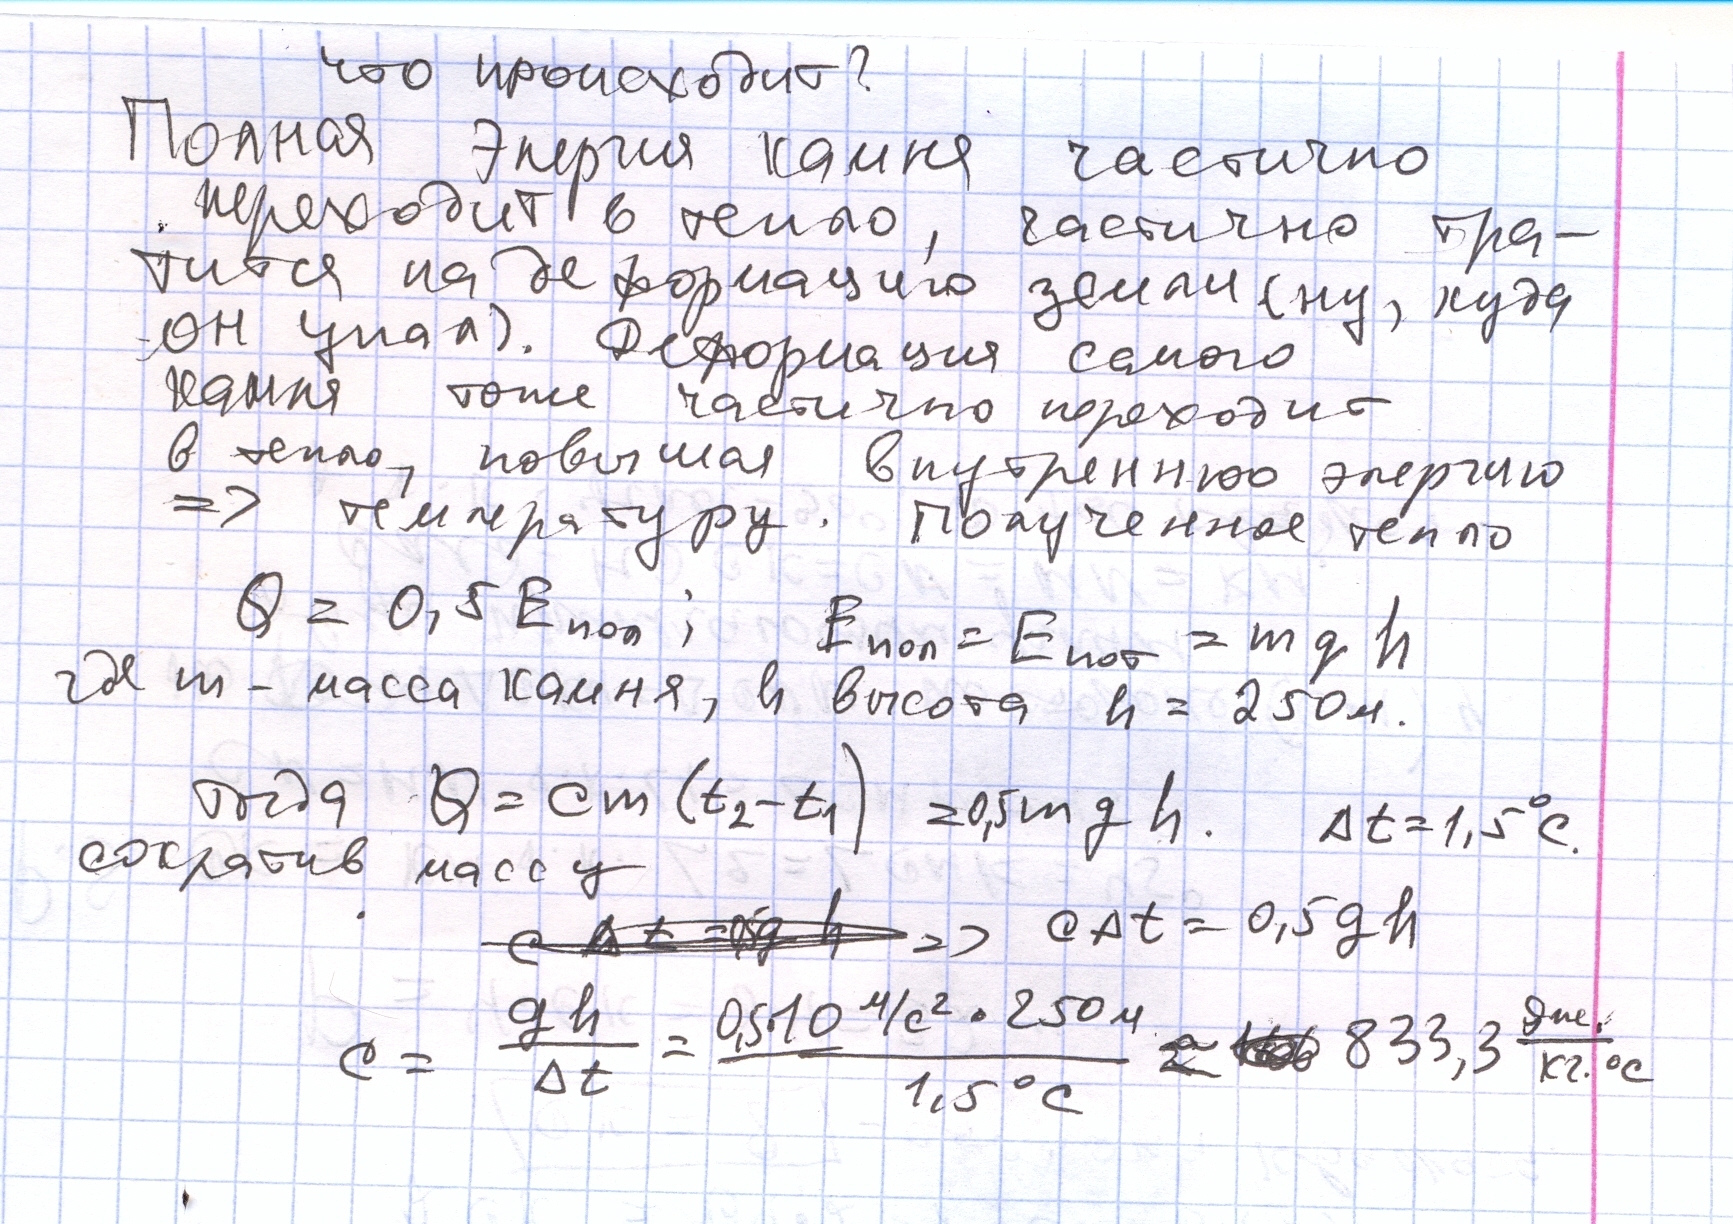 что происходит?
Полная Энергия камня частично
переходит в тепло, частично тра-
тится на деформацию земли (ну, куда
он упал). Деформация самого
камня тоже частично переходит
в тепло, повышая внутреннюю энергию
=> температуру. Полученное тепло
Q = 0,5 Eпол ; Eпол = Eпот = mgh
где m - масса камня, h высота h = 250м.
тогда Q = cm(t₂-t₁) = 0,5mgh. Δt = 1,5°C.
сократив массу
c Δt = 0,5gh => cΔt = 0,5gh
c = gh/Δt = 0,5·10 м/с² · 250м / 1,5°C ≈ 833,3 Дж./кг.°C